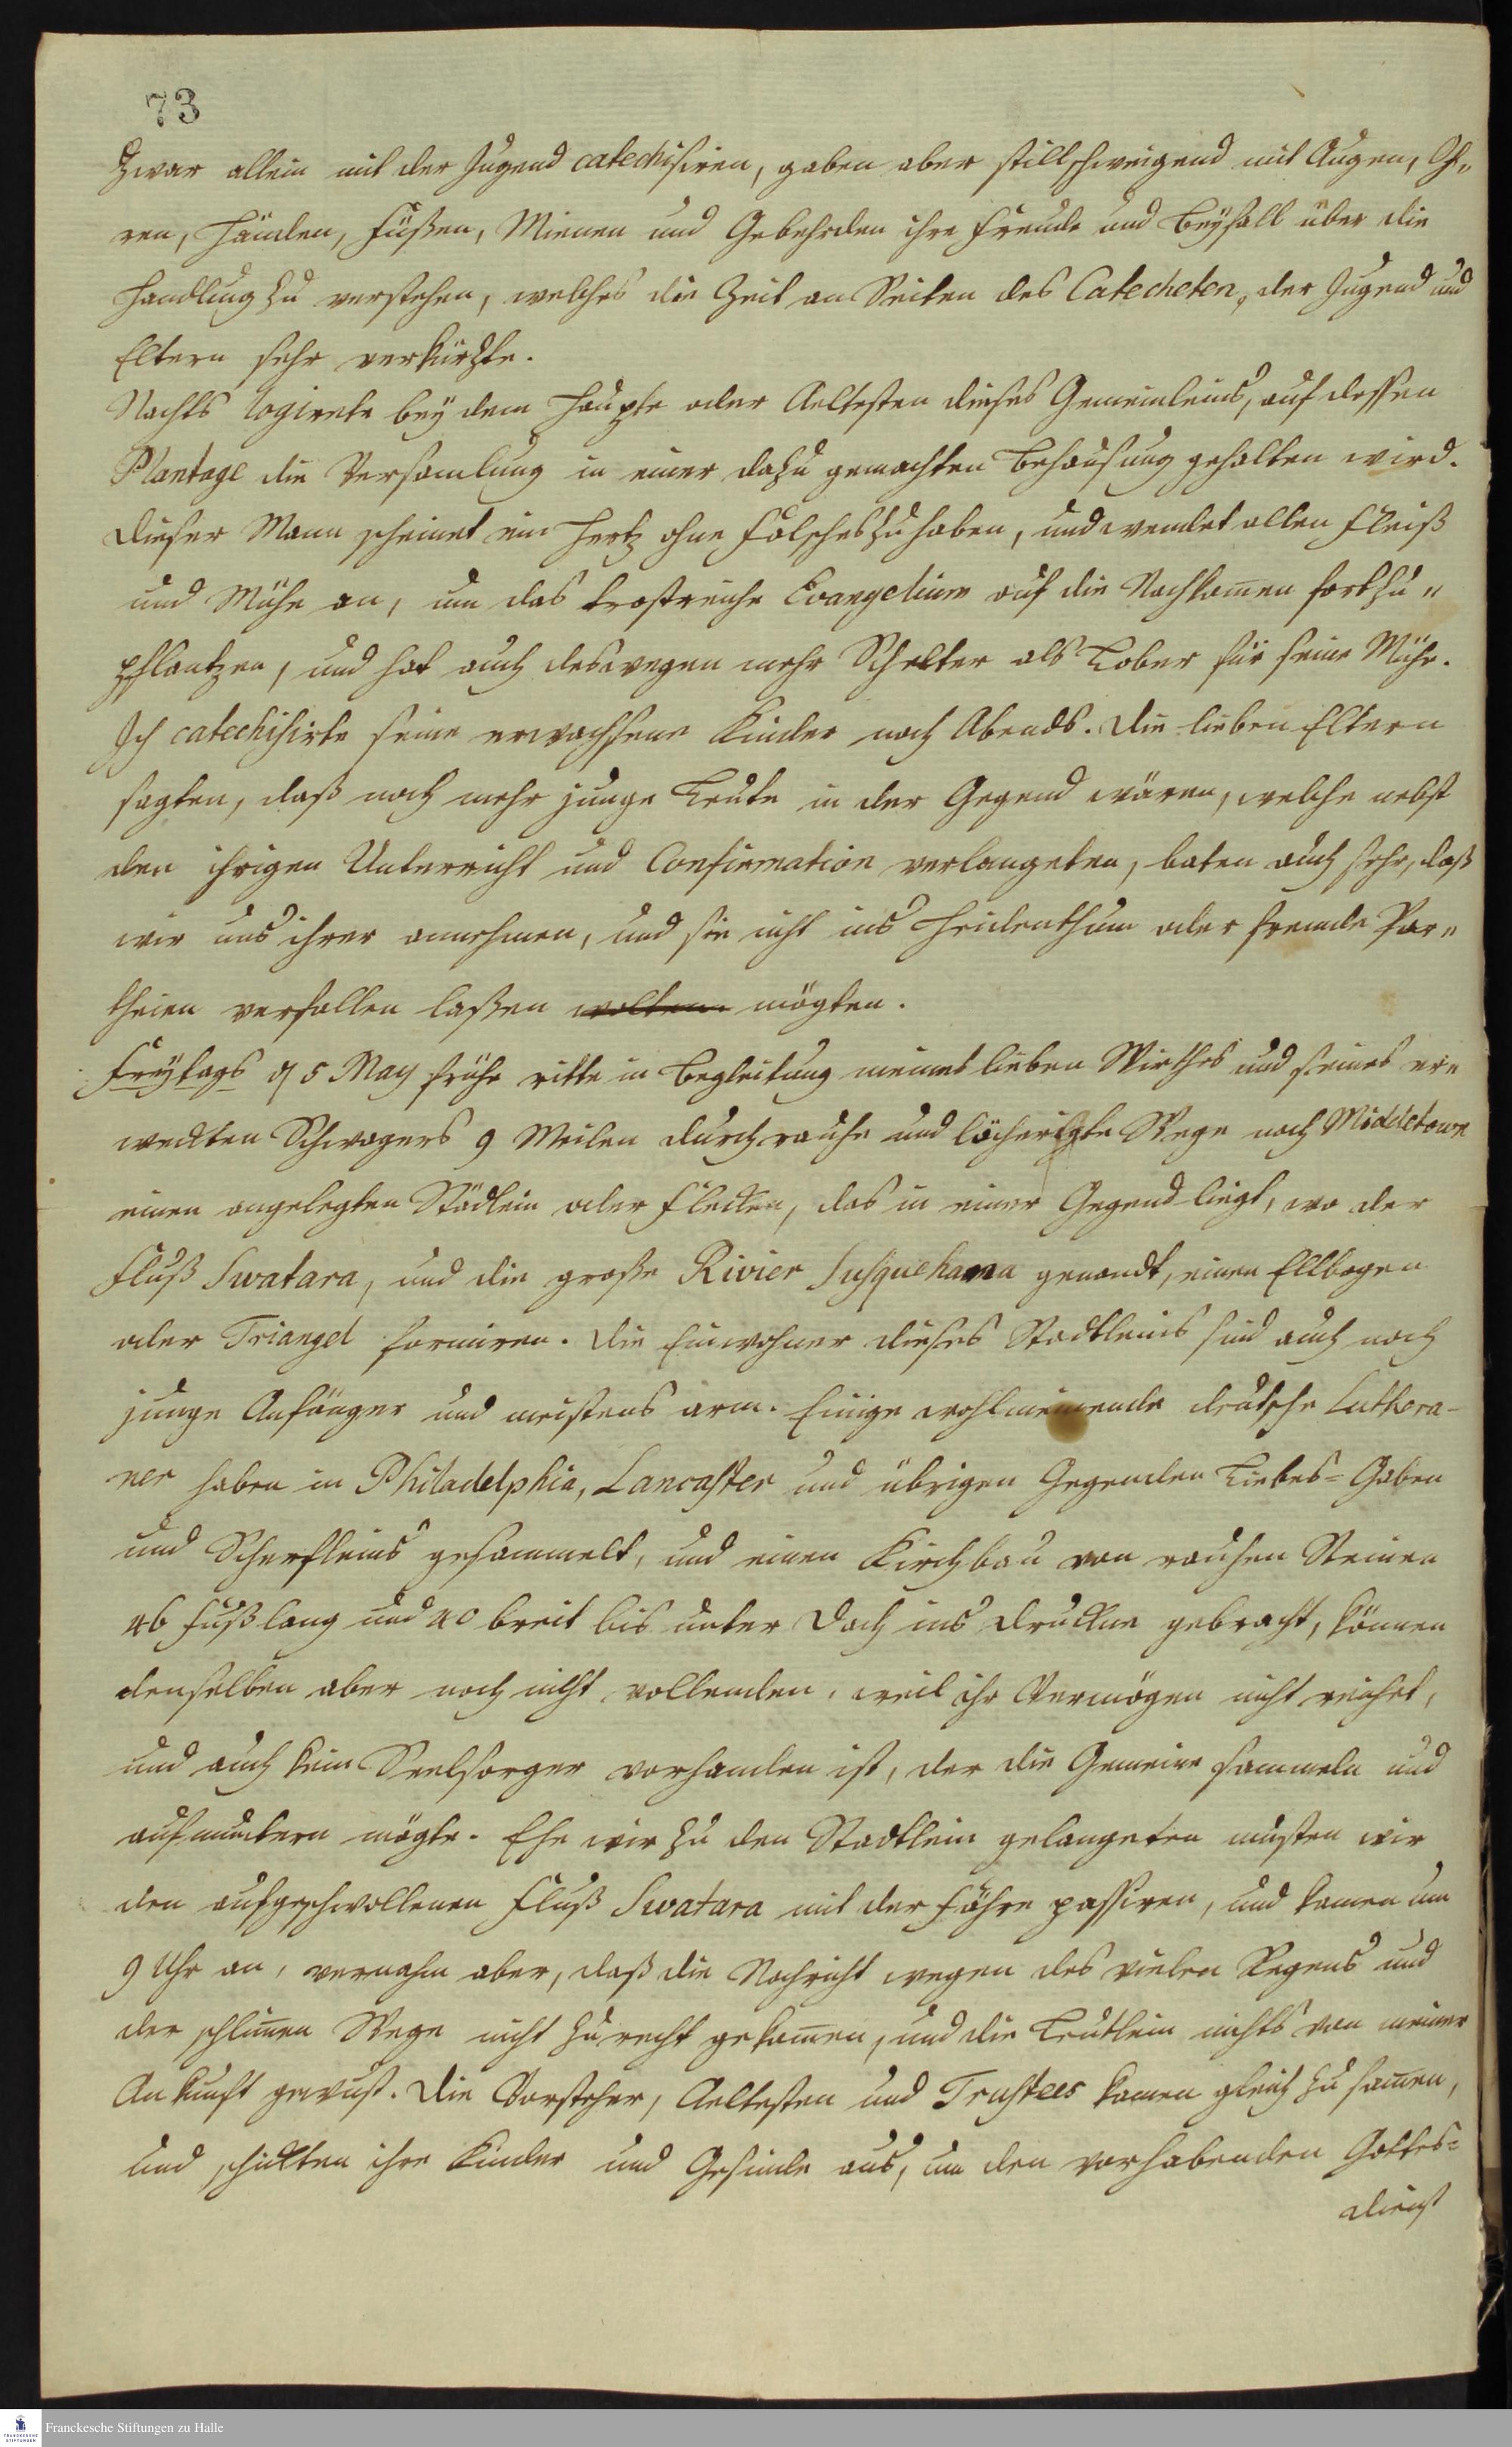 73
zwar allein mit der Jugend catechisiren, gaben aber stillschweigend mit Augen, Oh„
ren, Händen, Füßen, Mienen und Gebehrden ihre Freude und Beyfall über die
Handlung zu verstehen, welches die Zeit an Seiten des Catecheten, der Jugend und
Eltern sehr verkürzte.
Nachts logirete bey dem Haupte oder Aeltesten dieses Gemeinleins, auf dessen
Plantage die Versamlung in einer dazu gemachten Behausung gehalten wird.
Dieser Mann scheinet ein Hertz ohne Falsches zu haben, und wendet allen Fleiß
und Mühe an, um das trostreiche Evangelium auf die Nachkom̄en fortzu„
pflantzen, und hat auch deswegen mehr Schelter als Lober für seine Mühe.
Ich catechisirte seine erwachsene Kinder noch Abends. Die lieben Eltern
sagten, daß noch mehr junge Leute in der Gegend wären, welche nebst
den ihrigen Unterricht und Confirmation verlangeten, baten auch sehr, daß
wir uns ihrer annehmen, und sie nicht ins Heidenthum oder fremde Par„
theien verfallen laßen wolten mögten.
Freytags d 5 May frühe ritte in Begleitung meines lieben Wirthes und seines er„
weckten Schwagers 9 Meilen durch rauhe und löcherigte Wege nach Middletown
einen angelegten Städlein oder Flecken, das in einer Gegend liegt, wo der
Fluß Swatara, und die große Rivier Susquehana genandt, einen Ellbogen
oder Triangel formiren. Die Einwohner dieses Stadtleins sind auch noch
junge Anfänger und meistens arm. Einige wohlmeinende deutsche Luthera-
ner haben in Philadelphia, Lancaster und übrigen Gegenden Liebes=Gaben
und Scherfleins gesammelt, und einen Kirchbau von rauhen Steinen
46 Fuß lang und 40 breit bis unter Dach ins Druckne gebracht, können
denselben aber noch nicht vollenden, weil ihr Vermögen nicht reichet,
und auch kein Seelsorger vorhanden ist, der die Gemeine sammeln und
aufmuntern mögte. Ehe wir zu den Stadtlein gelangeten musten wir
den aufgeschwollenen Fluß Swatara mit der Fähre passiren, und kamen um
9 Uhr an, vernahm aber, daß die Nachricht wegen des vielen Regens und
der schlim̄en Wege nicht zurecht gekom̄en, und die Leutlein nichts von meiner
Ankunft gewust. Die Vorsteher, Aeltesten und Trustees kamen gleich zusam̄en,
und schickten ihre Kinder und Gesinde aus, um den vorhabenden Gottes=
dienst
Franckesche Stiftungen zu Halle
FRANCKESCHE STIFTUNGEN